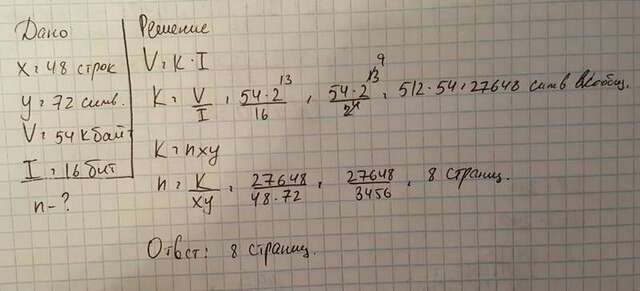 Дано
x = 48 строк
y = 72 симв.
V = 54 кбайт
I = 16 бит
n - ?
Решение
V = K · I
K = V/I = 54·2^13/16 = 54·2^13/2^4 9 = 512·54 = 27648 симв
K = nxy
n = K/xy = 27648/48·72 = 27648/3456 = 8 страниц.
Ответ: 8 страниц.